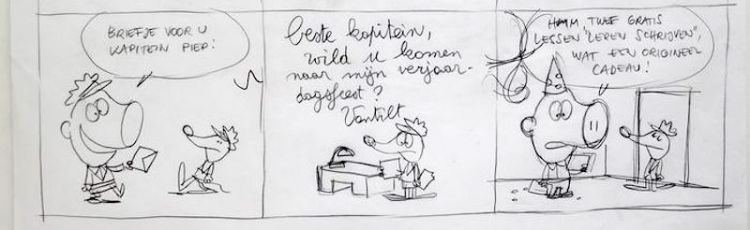 BRIEFJE VOOR U
KAPITEIN PIEP!
beste kapitein,
wild u komen
naar mijn verjaar-
dagsfeest?
Vantilt
HMM, TWEE GRATIS
LESSEN "LEREN SCHRIJVEN",
WAT EEN ORIGINEEL
CADEAU!